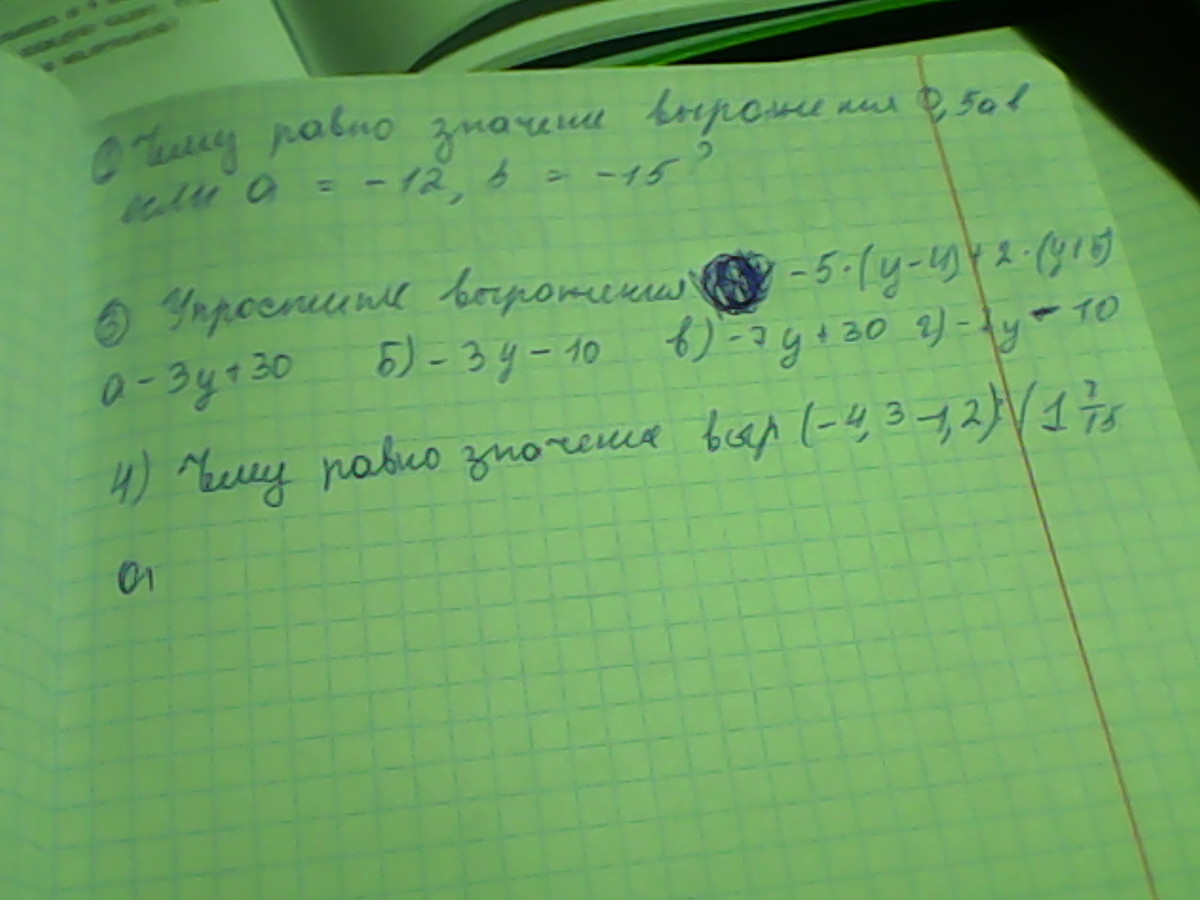 Чему равно значение выражения 0,5ав
если а = -12, в = -15?
③ Упростите выражения -5·(у-4)+2·(у+5)
а -3у+30 б) -3у-10 в) -7у+30 г) - у - 10
4) Чему равно значение выр (-4,3-1,2):(1 7/15
а